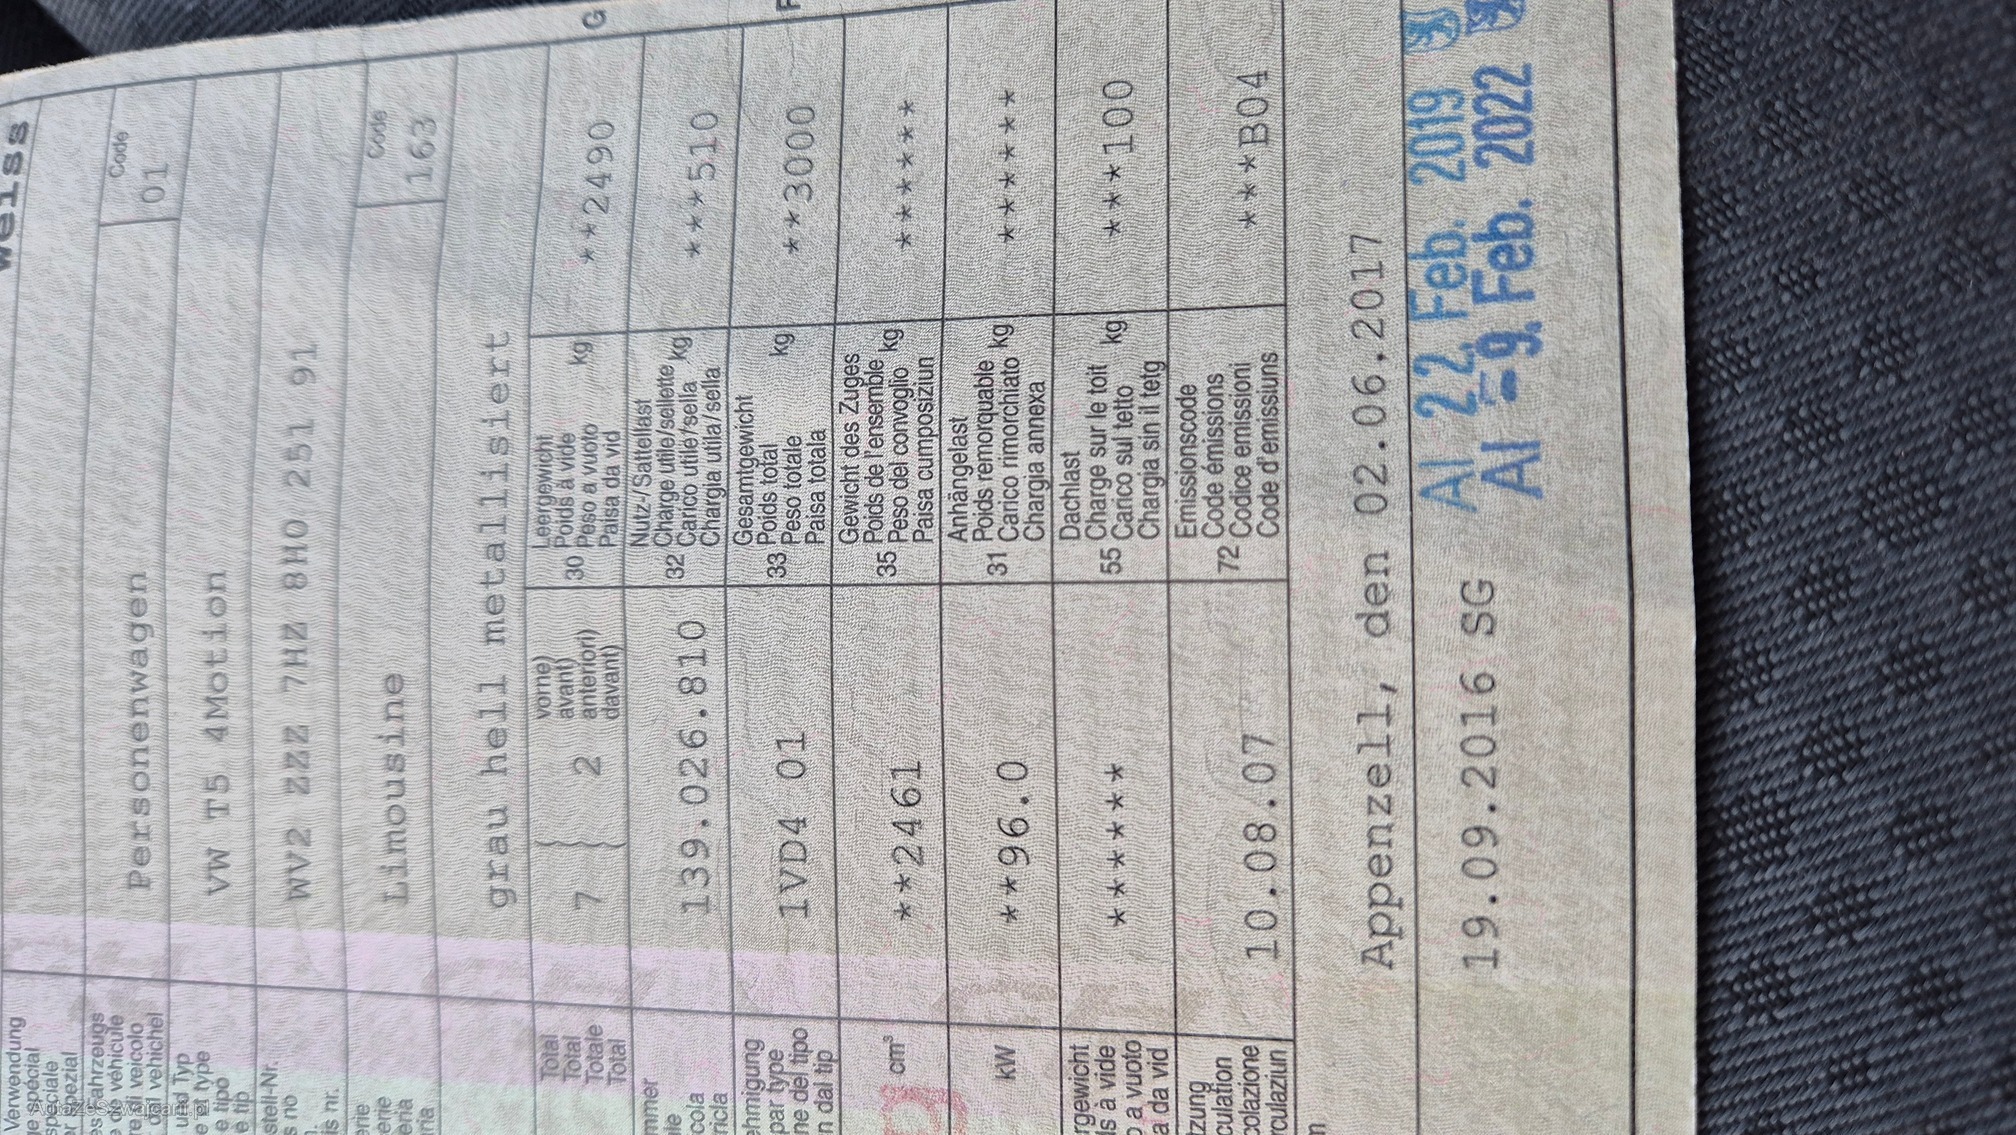 weiss
Verwendung
spécial
speciale
spezial
Personenwagen
Code
01
und Typ
VW T5 4Motion
WV2 ZZZ 7HZ 8H0 251 91
Limousine
Code
163
grau hell metallisiert
Total
Total
Totale
Total
7 2
vorne)
avant)
anteriori)
davant)
30
Leergewicht
Poids à vide
Peso a vuoto
Paisa da vid
kg
**2490
G
139.026.810
32
Nutz-/Sattellast
Charge utile/sellette
Carico utile/sella
Chargia utila/sella
kg
***510
par type
del tipo
dal tip
1VD4 01
33
Gesamtgewicht
Poids total
Peso totale
Paisa totala
kg
**3000
cm³
**2461
35
Gewicht des Zuges
Poids de l'ensemble
Peso del convoglio
Paisa cumposiziun
kg
******
kW
**96.0
31
Anhängelast
Poids remorquable
Carico rimorchiato
Chargia annexa
kg
******
à vide
a vuoto
da vid
******
55
Dachlast
Charge sur le toit
Carico sul tetto
Chargia sin il tetg
kg
***100
10.08.07
72
Emissionscode
Code émissions
Codice emissioni
Code d'emissiuns
***B04
Appenzell, den 02.06.2017
19.09.2016 SG
AI 22. Feb. 2019
AI -9. Feb. 2022
AutazeSzwajcarii.pl